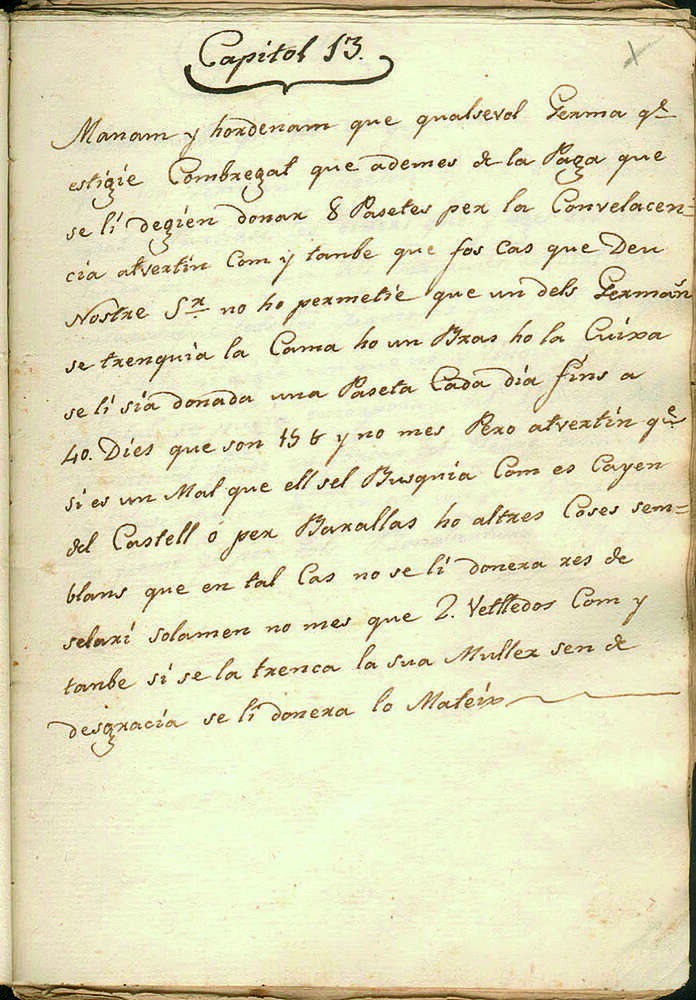 Capitol 13.
Manam y hordenam que qualsevol Germa qe
estigie Combregat que ademes de la Paga que
se li degien donar 8 Pasetes per la Convelacen=
cia atvertin Com y tanbe que fos cas que Deu
Nostre Sr. no ho permetie que un dels Germans
se trenquia la Cama ho un Bras ho la Cuixa
se li sia donada una Paseta Cada dia fins a
40. Dies que son 15 ₶ y no mes Pero atvertin qe
si es un Mal que ell sel Busquia Com es Cayen
del Castell o per Barallas ho altres Coses sem=
blans que en tal Cas no se li donera res de
selari solamen no mes que 2. Vetlledos Com y
tanbe si se la trenca la sua Muller sen de
desgracia se li donera lo Mateix